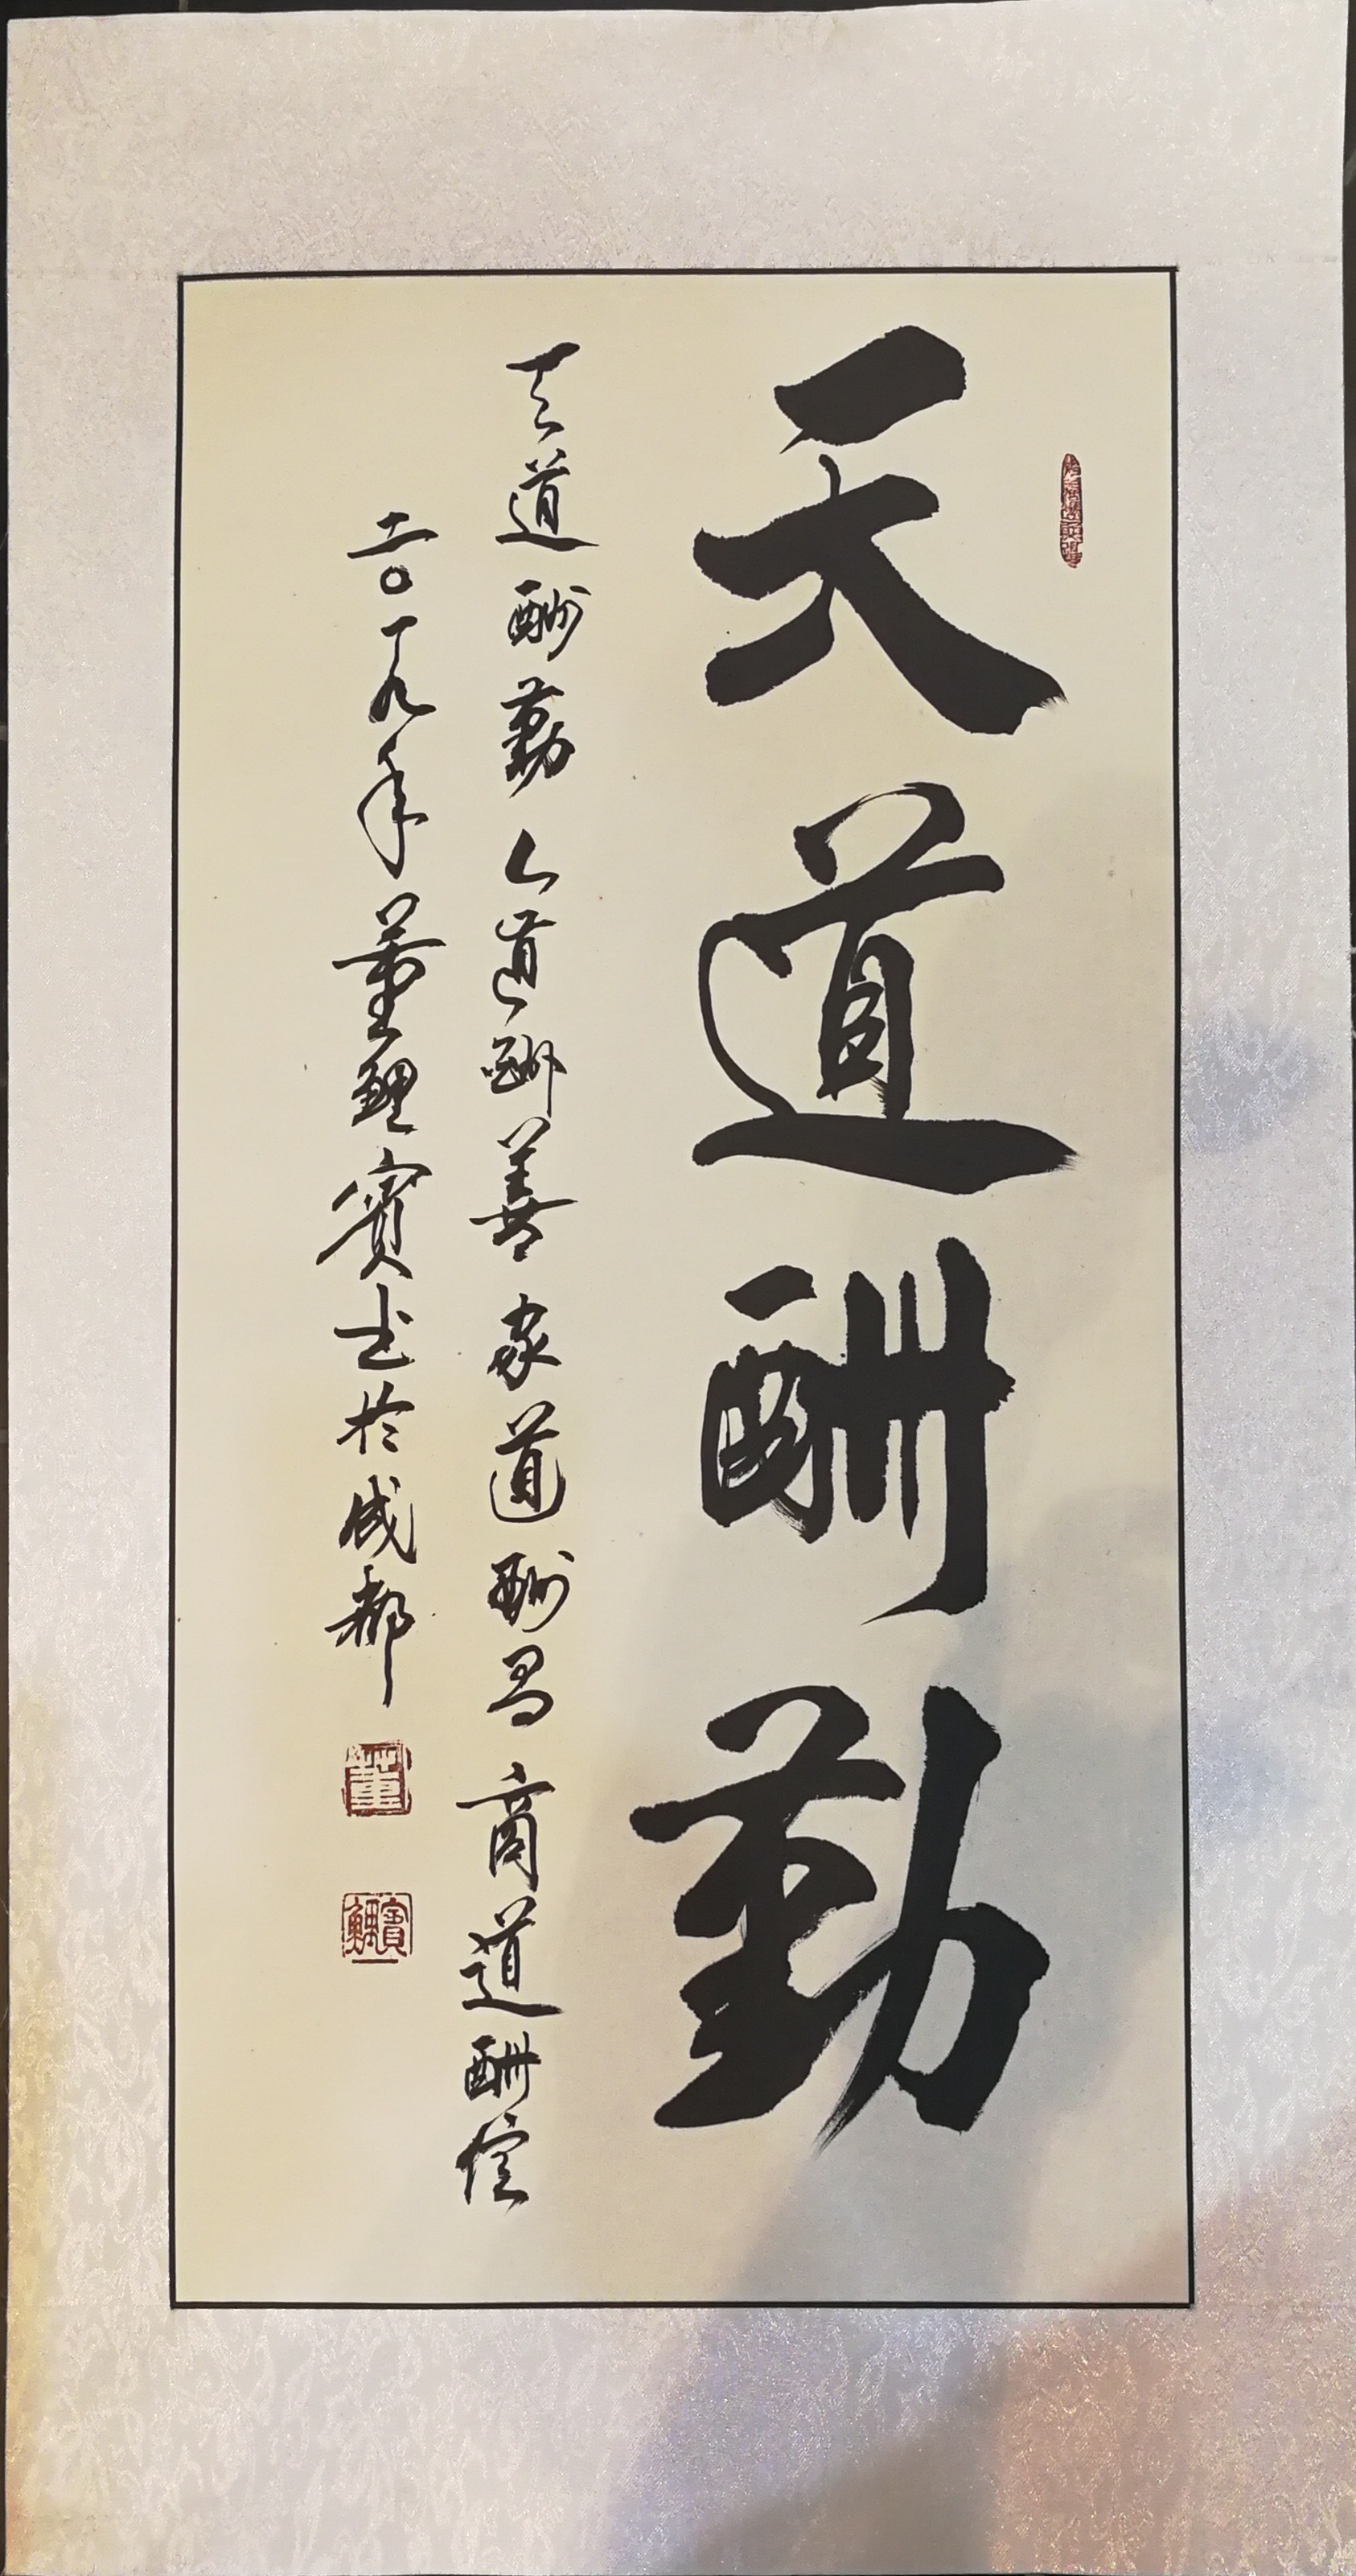 天道酬勤
天道酬勤人道酬善家道酬昌商道酬信
二〇一九年董鲤賓书於成都
董